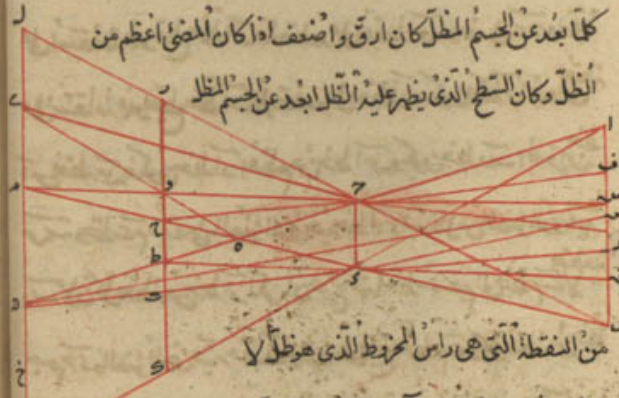 كلما بعد عن الجسم المظل كان ارق واضعف اذا كان المضئ اعظم من
الظل وكان السطح الذى يظهر عليه الظل ابعد عن الجسم المظل
من النقطة التى هى راس المخروط الذى هو ظل لا